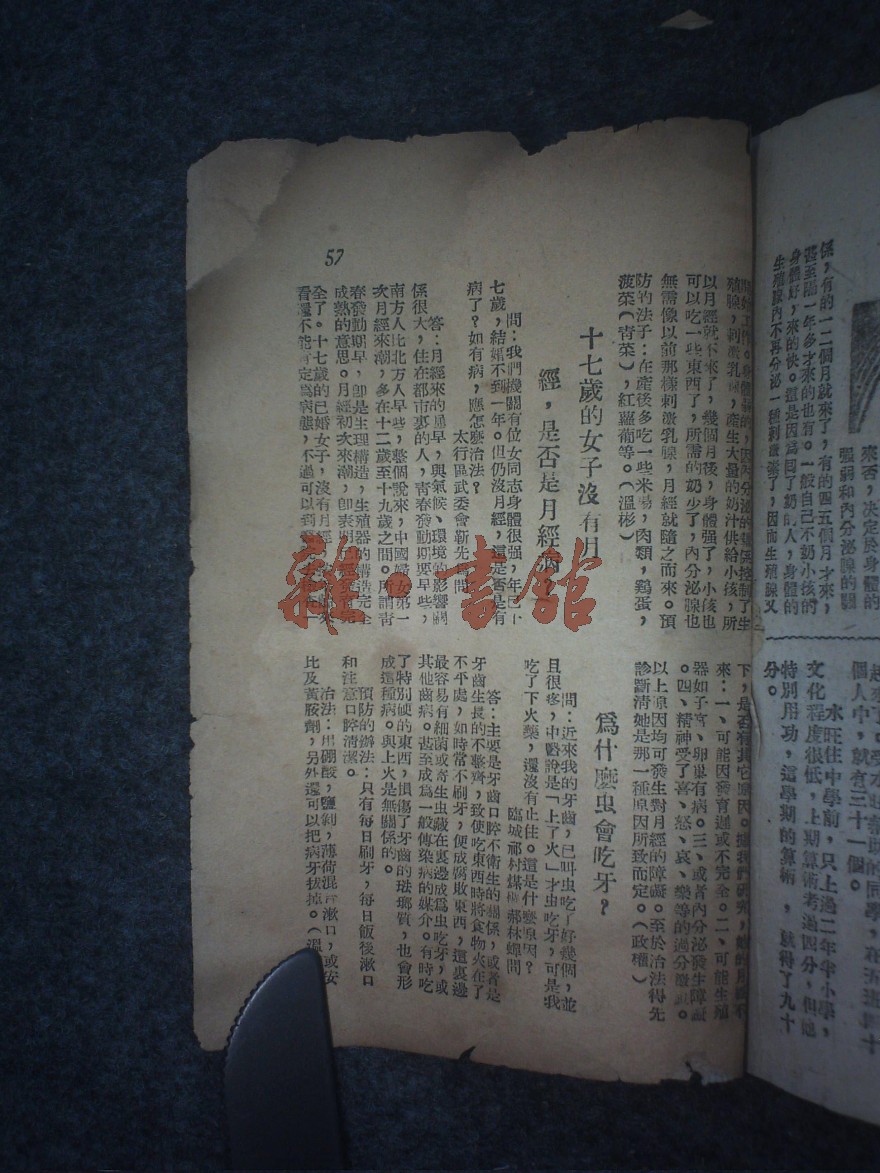 係，有的一二個月就來了，有的四五個月才來，
甚至隔一年多才來的也有。一般自己不奶小孩的
身體好，來的快。這是因爲回了奶的人，身體的
生殖腺內不再分泌一種刺激素了，因而生殖腺又
來否，决定於身體的
强弱和內分泌腺的關
同學，在
個人中，就有三十一個。
水旺住中學前，只上過二年半小學，
文化程度很低，上期算術考過四分，但他
特別用功，這學期的算術，就得了九十
分。
殖腺，刺激乳腺，產生大量的奶汁供給小孩，所
以月經就不來了，幾個月後，身體强了，小孩也
可以吃一些東西了，所需的奶少了，內分泌腺也
無需像以前那樣刺激乳腺，月經就隨之而來。預
防的法子：在產後多吃一些米湯，肉類，鷄蛋，
菠菜（青菜），紅蘿蔔等。（溫彬）
十七歲的女子沒有月
經，是否是月經病？
問：我們機關有位女同志身體很强，年已十
七歲，結婚不到一年。但仍沒月經，還是否是有
病了？如有病，應怎麽治法？
太行區武委會靳先 問
答：月經來的晨早，與氣候、環境的影響關
係很大，住在都市裏的人，青春發動期要早些，
南方人比北方人早些，整個說來，中國婦女第一
次月經來潮，多在十二歲至十九歲之間。所謂青
春發動期早，卽是生理構造，生殖器的構造完全
成熟的意思。月經初次來潮，卽表明
全了。十七歲的已婚女子，沒有月經
看還不能肯定爲病態，不過可以到
下，是否有其它原因。據我們研究，她的月經不
來：一、可能因發育過或不完全。二、可能生殖
器如子宮、卵巢有病。三、或者內分泌發生障礙
。四、精神受了喜、怒、哀、樂等的過分激
以上原因均可發生對月經的障礙。至於治法得先
診斷清她是那一種原因所致而定。（政權）
爲什麽虫會吃牙？
問：近來我的牙齒，已叫虫吃了好幾個，並
且很疼，中醫說是「上了火」才虫吃牙，可是我
吃了下火藥，還沒有止住。這是什麽原因？
臨城祁村煤 郝林蟬問
答：主要是牙齒口腔不衛生的關係，或者是
牙齒生長的不整齊，致使吃東西時將食物夾在了
不平處，如時常不刷牙，便成腐敗東西，這裏邊
最容易有細菌或寄生虫藏在裏邊成爲虫吃牙，或
其他齒病。甚至成爲一般傳染病的媒介。有時吃
了特別硬的東西，損傷了牙齒的琺瑯質，也會形
成這種病。與上火是無關係的。
預防的辦法：只有每日刷牙，每日飯後漱口
和注意口腔清潔。
治法：用硼酸，鹽剝，薄荷混合漱口，或安
比及黃胺劑，另外還可以把病牙拔掉。（溫
57
雜·書館